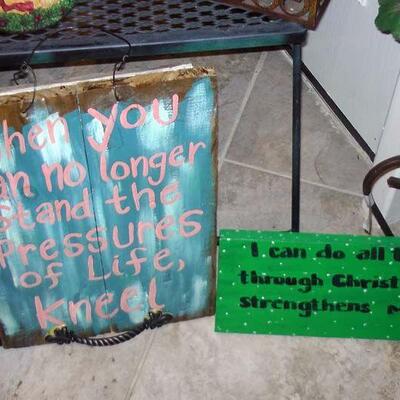 When you
can no longer
stand the
Pressures
of Life,
Kneel
I can do all
through Christ
strengthens